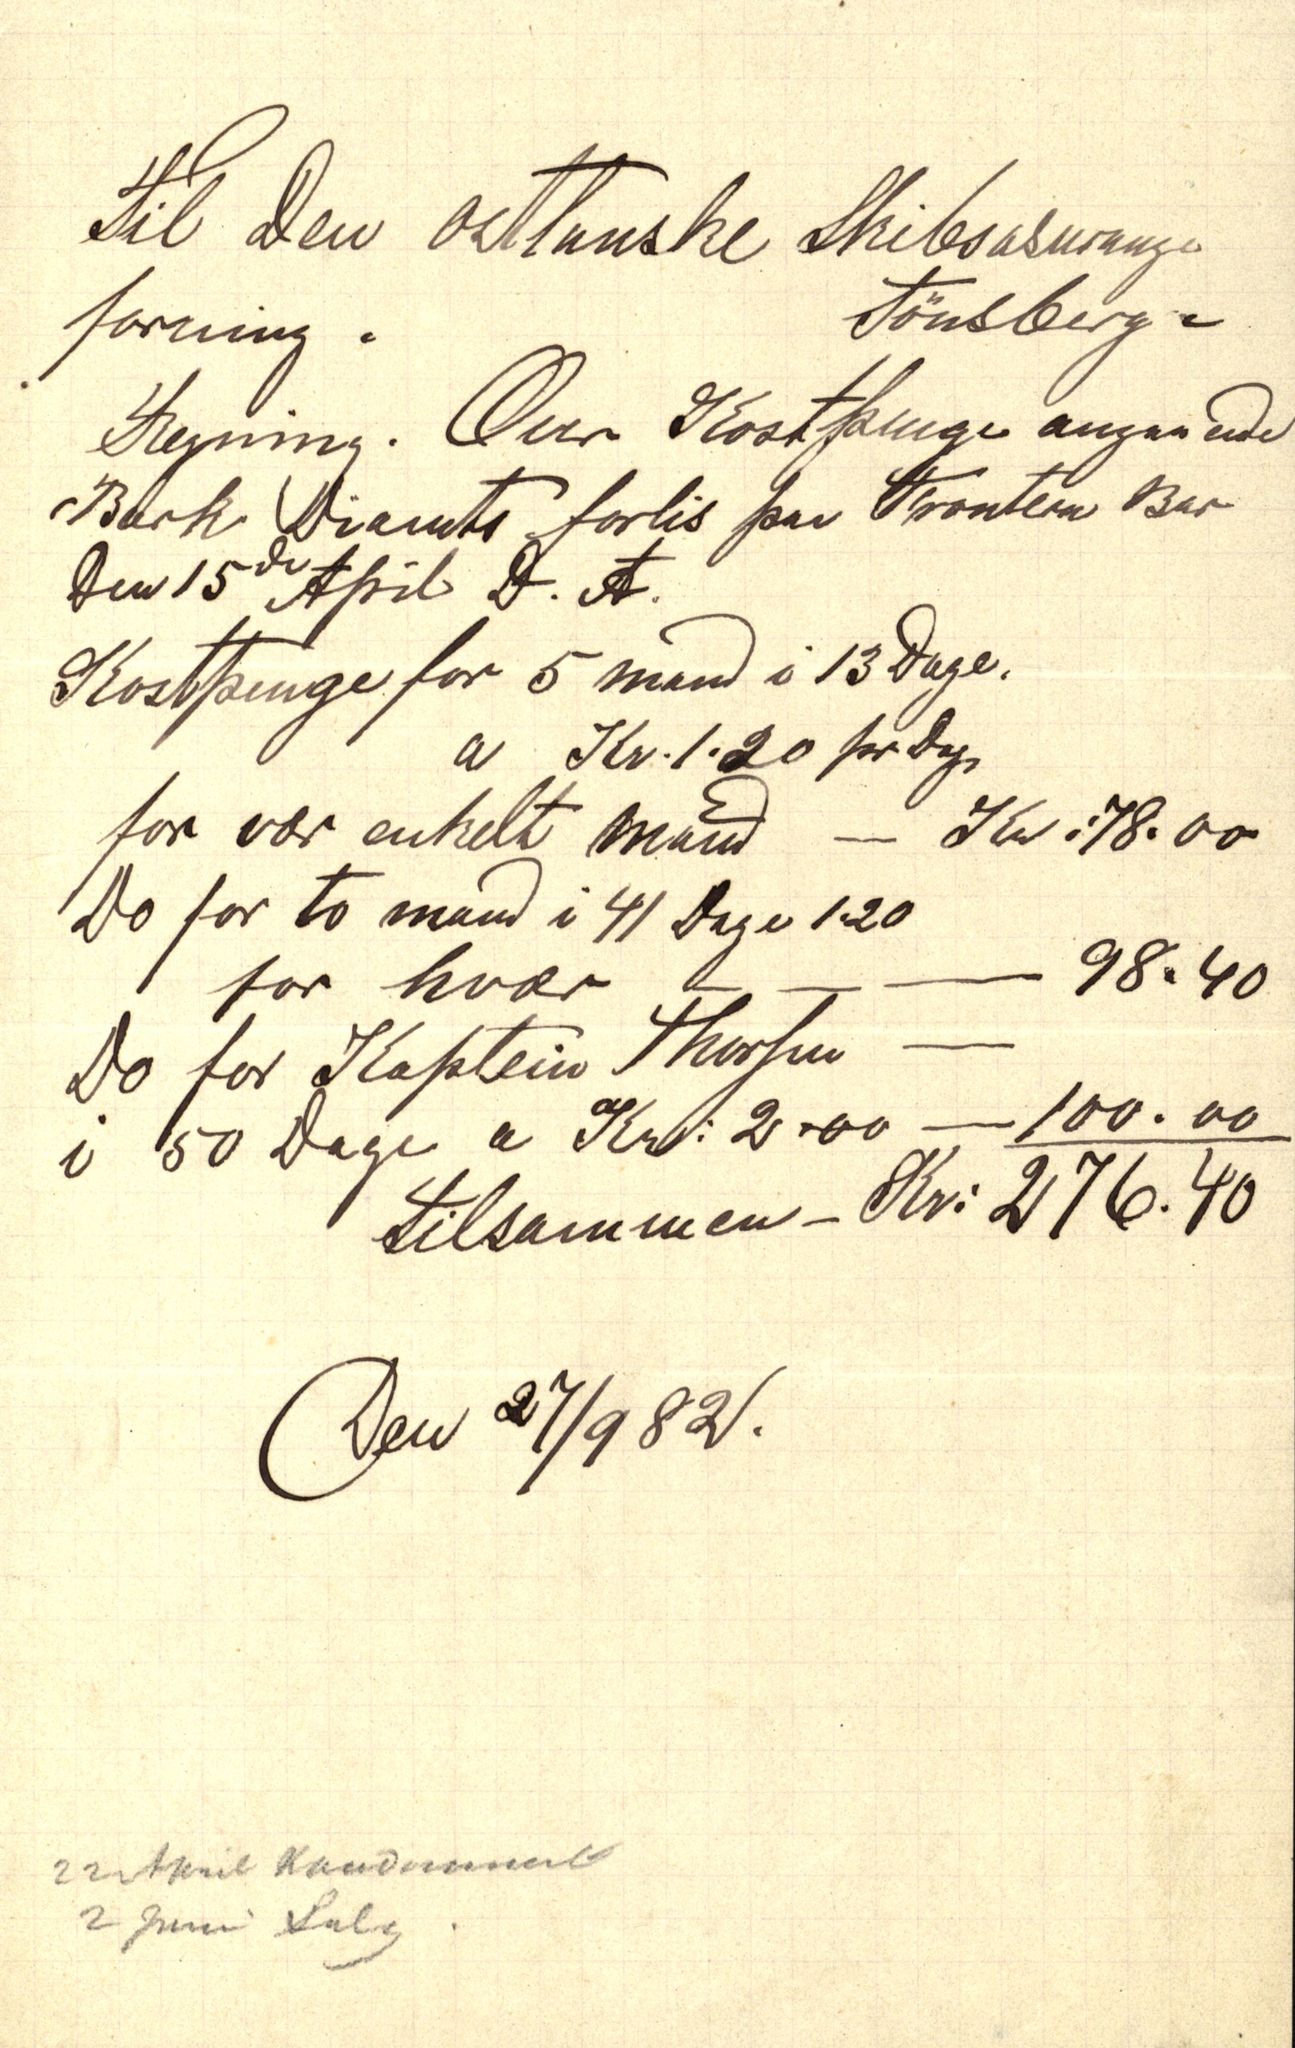 Til Den östlanske Skibsasurange
forning. Tönsberg -
Regning. Over Kostpenge angaaende
Bark Diamts forlis paa Frontera Bar
Den 15de April D. A.
Kostpenge for 5 mand i 13 Dage.
a Kr. 1.20 pr Dag
for vær enkelt mand — Kr: 78.00
Do for to mand i 41 Dage 1.20
for hvær — — — 98.40
Do for Kaptein Thorsen —
i 50 Dage a Kr: 2.00 — 100.00
Tilsammen - Kr: 276.40
Den 27/9 82.
22 April Kondemneret
2 Juni Salg.